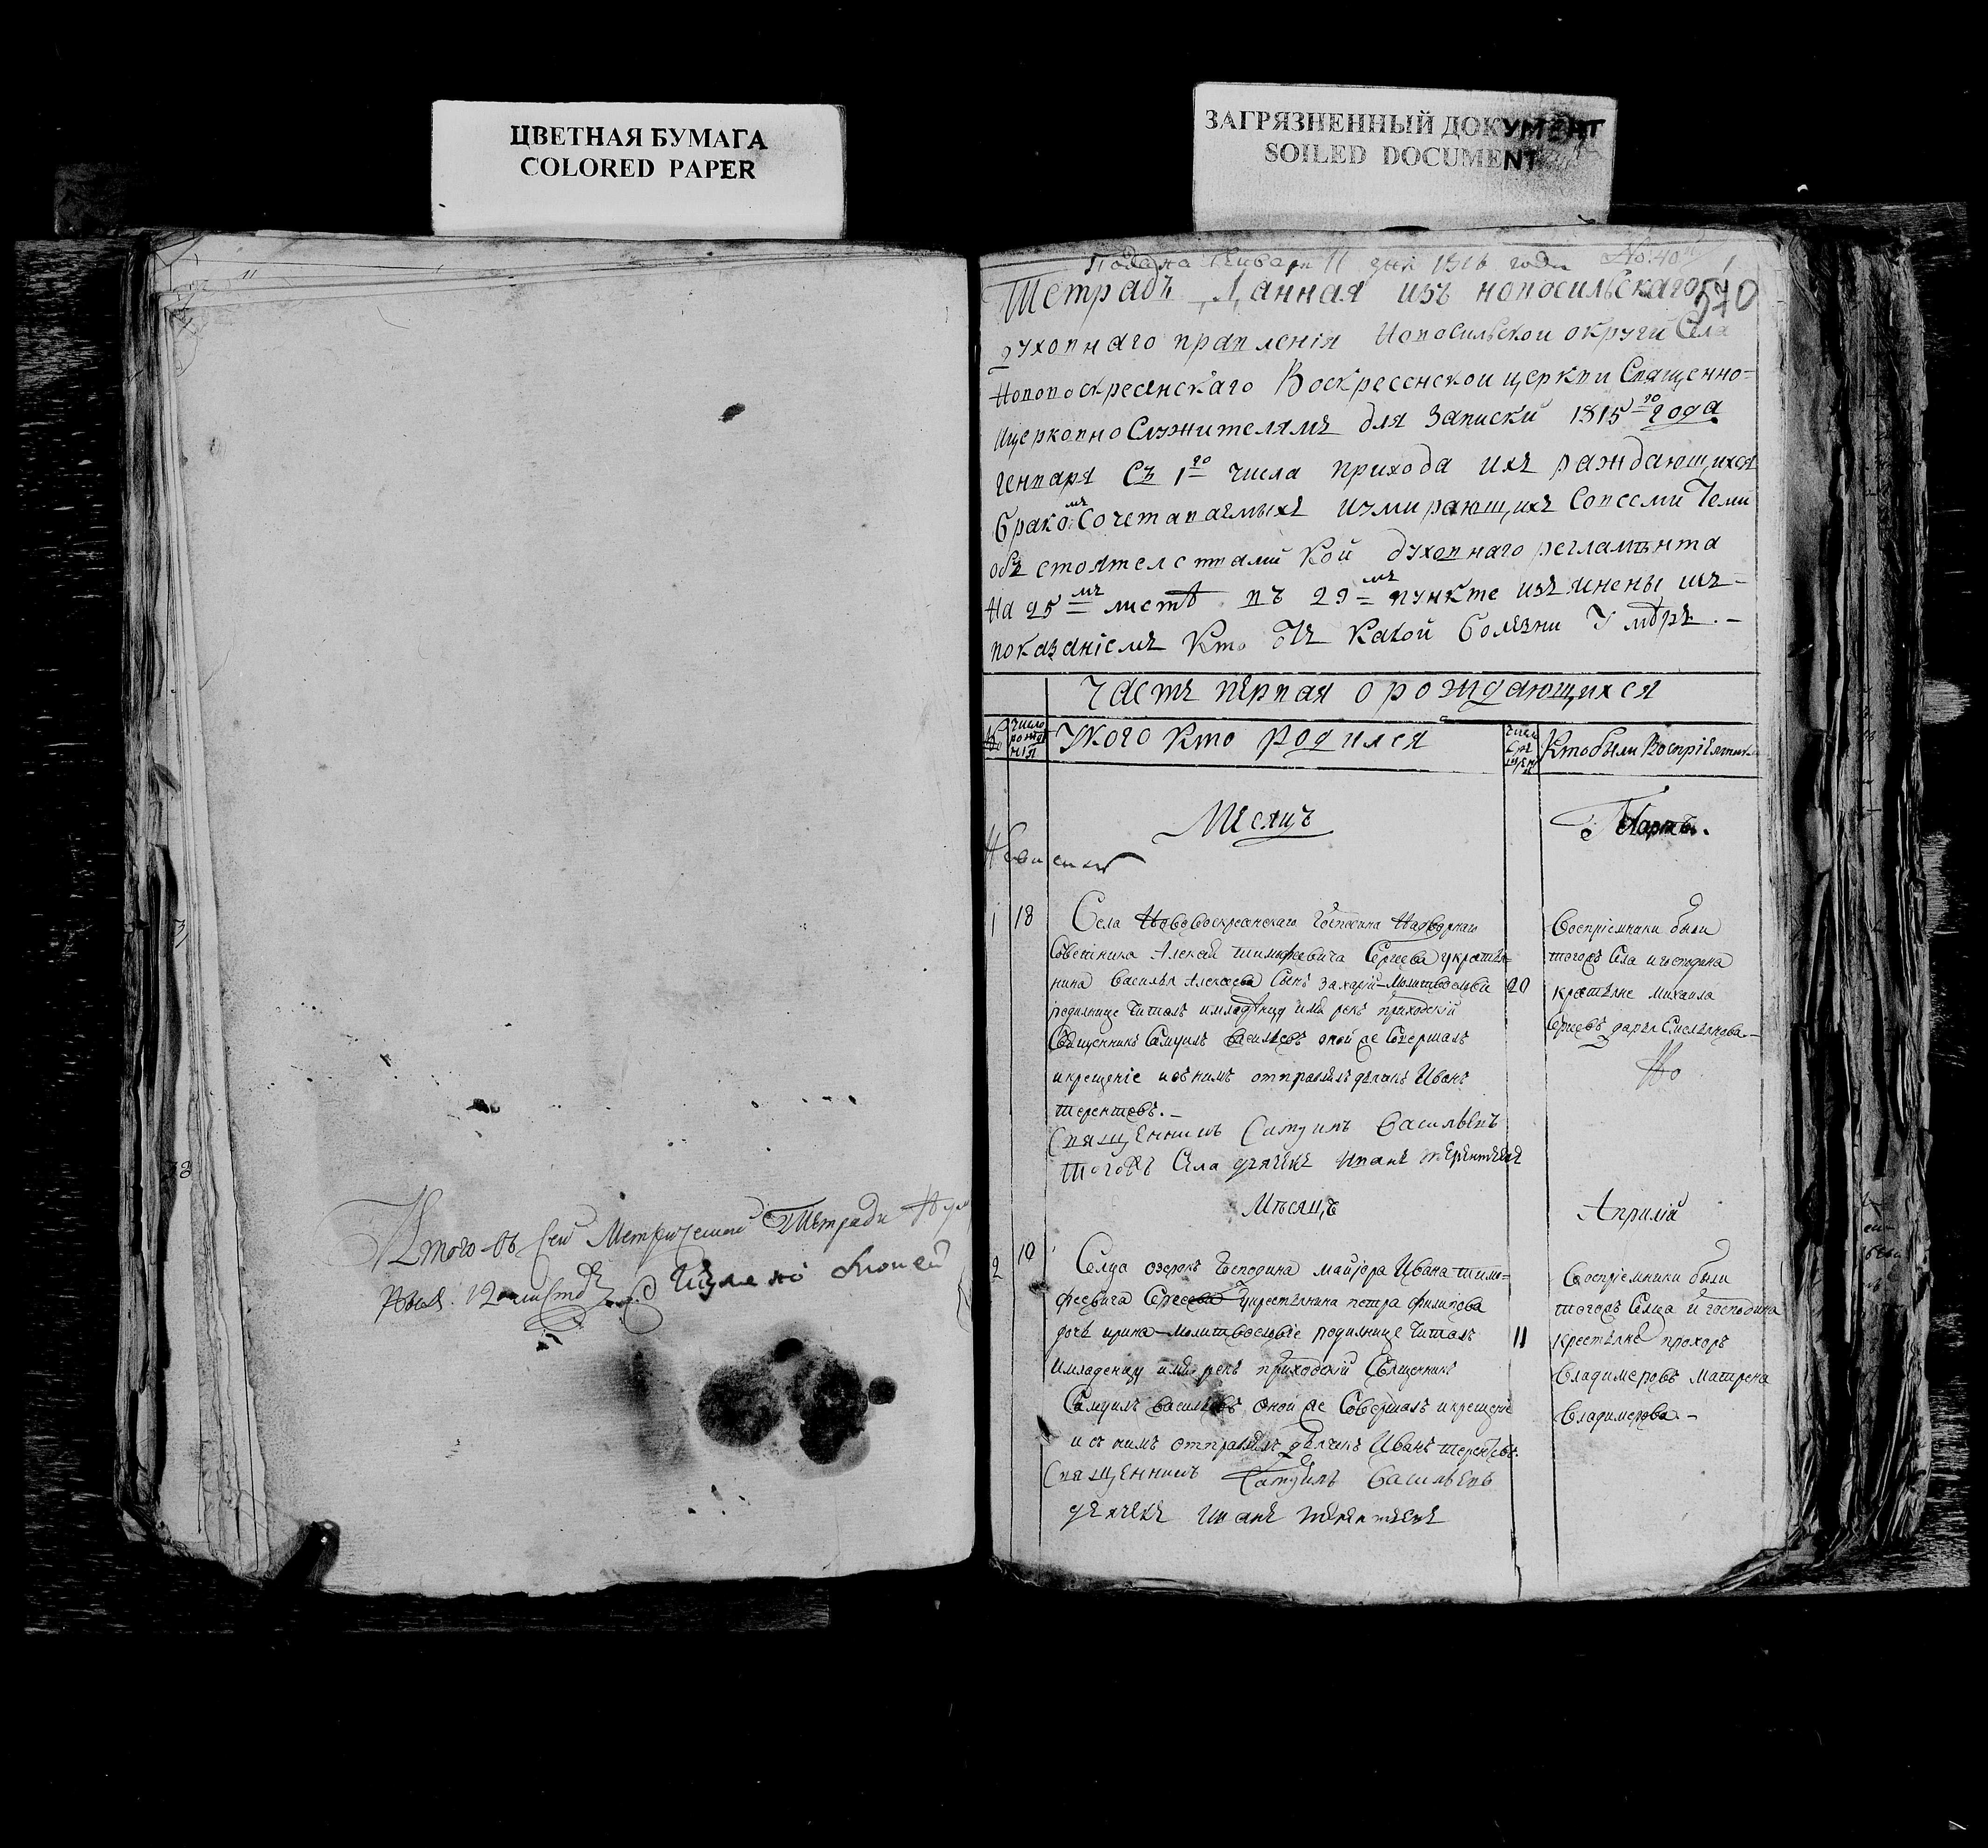 ЦВЕТНАЯ БУМАГА
COLORED PAPER
ЗАГРЯЗНЕННЫЙ ДОКУМЕНТ
SOILED DOCUMENT
Итого въ сей Метрической Тетради
12 листовъ
Подана Генваря 11 дня 1816 года No. 40
570
Тетрадь Данная изъ новосильскаго
духовнаго правленія Новосильской округи Села
Нововоскресенскаго Воскресенской церкви Священно-
ицерковнослужителямъ для Записки 1815го года
генваря съ 1го числа прихода ихъ раждающихся
бракомъ Сочетаваемыхъ иумирающихъ Совсеми Теми
обстоятелствами кои духовнаго регламента
на 25мъ листѣ въ 29мъ пункте изъяснены съ
показаніемъ Кто Отъ Какой болезни Умѣръ.-
Часть первая о рождающихся
№
Число рожденія
Укого кто родился
Число крещенія
Кто были Воспріемники
Месяцъ
Мартъ.
1
18
Села Нововоскресенскаго Господина Надворнаго
Советника Алексѣя тимофеевича Сергеева укрестья-
нина Василья Алексеева Сынъ Захарій-Молитвословіе
20
родилнице Читалъ имладенцу имя рекъ приходскій
Священникъ Самуилъ Васильевъ оной же Совершалъ
икрещеніе исънимъ отправлялъ дьячокъ Иванъ
терентьевъ.-
Священникъ Самуилъ Васильевъ
тогожъ Села дьячекъ Иванъ терентьевъ
Воспріемники были
тогожъ Села игосподина
крестьяне михаила
дарья Емельянова.-
Месяцъ
Априлій
2
10
Селца озерокъ Господина маиора Ивана тимо-
феевича Сергеева укрестьянина петра филипова
дочь ирина-молитвословіе родилнице Читалъ
11
имладенцу имя рекъ приходскій Священникъ
Самуилъ васильевъ оной же Совершалъ икрещение
исънимъ отправлялъ дьячекъ Иванъ терентьевъ.
Священникъ Самуилъ Васильевъ
дьячекъ Иванъ терентьевъ
Воспріемники были
тогожъ Селца и господина
крестьяне прохоръ
Владимеровъ матрена
Владимерова-